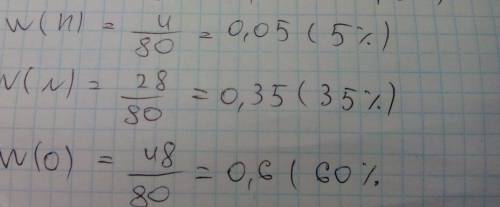 W(H) = 4/80 = 0,05 (5%)
W(N) = 28/80 = 0,35 (35%)
W(O) = 48/80 = 0,6 (60%